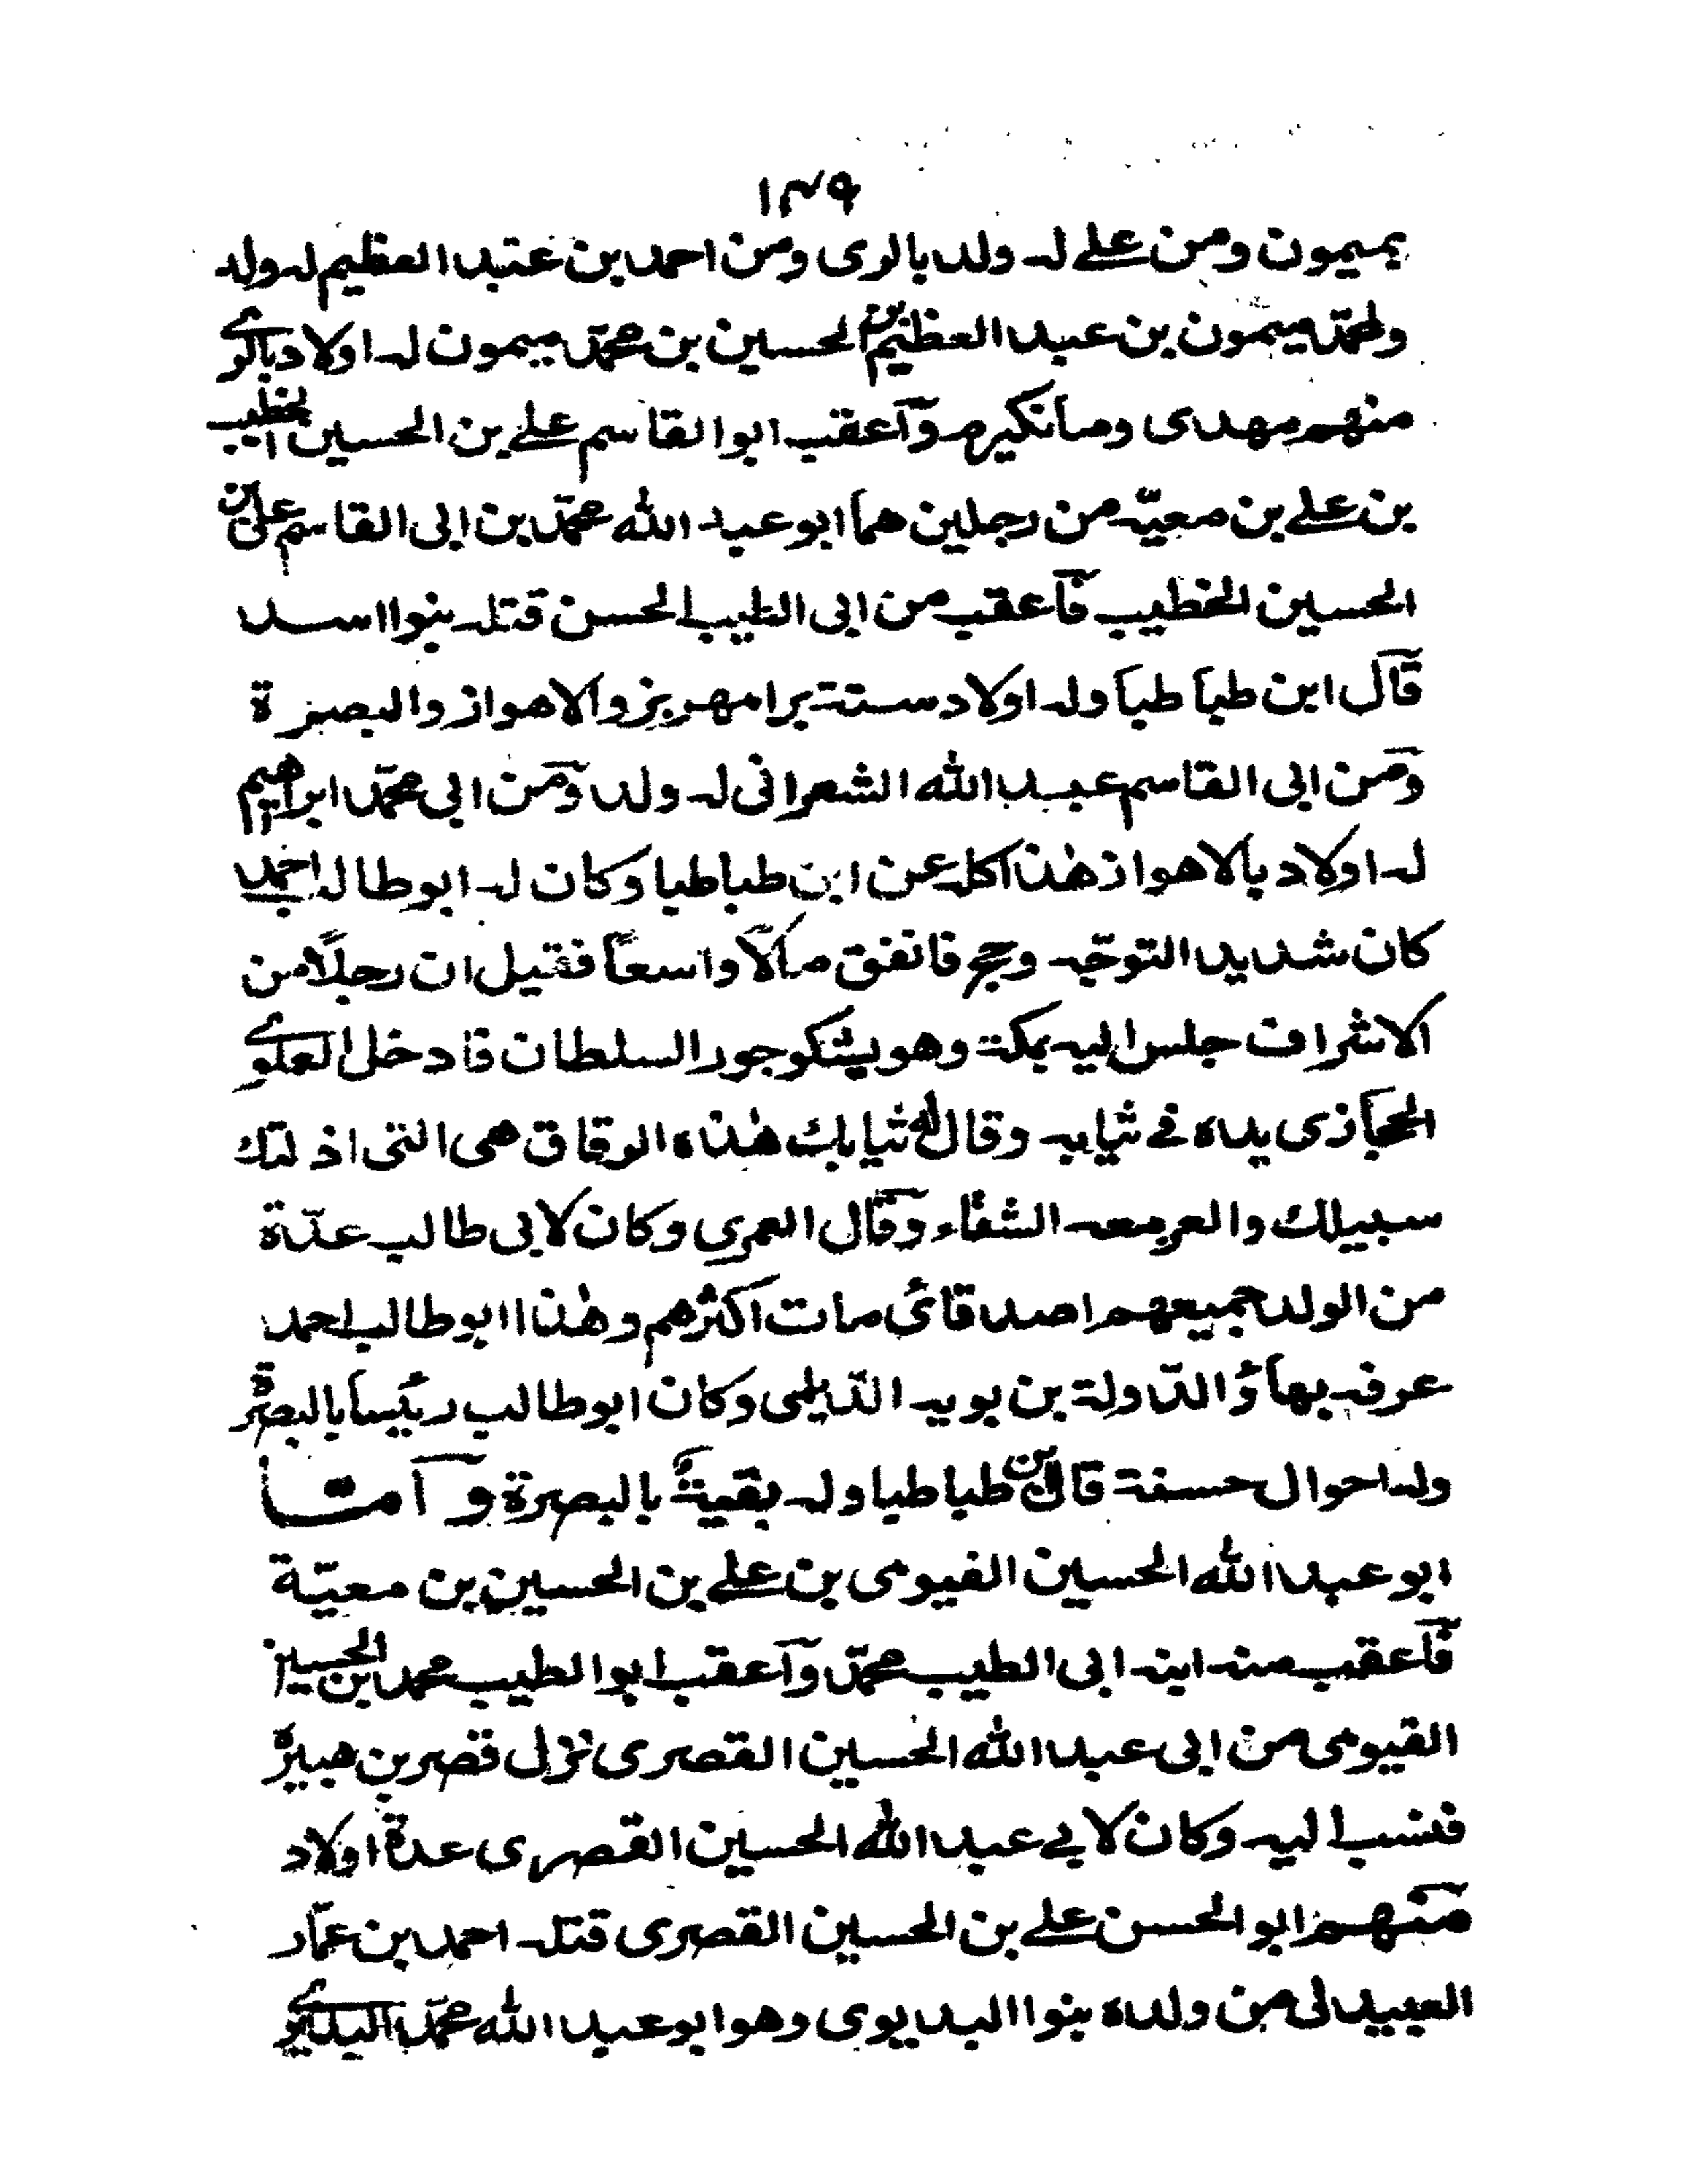 ١٣٩
بميمون ومن علے له ولد بالری ومن احمد بن عبد العظيم له ولد
ولمحمّد ميمون بن عبد العظيم بن الحسين بن محمّد ميمون له اولاد بالرے
منهم مهدی ومانكيدم وآعقب ابو القاسم علے بن الحسين الخطيب
بن علے بن معيّه من رجلين هما ابو عبد الله محمّد بن ابی القاسم علی بن
الحسين الخطيب فآعقب من ابی الطيب الحسن قتله بنوا اسد
قآل ابن طبا طبا وله اولاد ستة برامهريز والاهواز والبصرة
ومن ابی القاسم عبد الله الشعرانی له ولد ومن ابی محمّد ابراهيم
له اولاد بالاهواز هذا كله عن ابن طباطبا وكان له ابو طالب احمد
كان شديد التوجّه وحج فانفق مالًا واسعاً فقيل ان رجلاً من
الاشراف جلس اليه بمكة وهو يشكو جور السلطان فادخل العلوے
الحجازی يده فے ثيابه وقال له ثيابك هذه الرقاق هی التی اذلتك
سبيلك والعز معه الشقاء وقآل العمری وكان لابی طالب عدّة
من الولد جميعهم اصدقائی مات اكثرهم وهذا ابو طالب احمد
عرفه بهاؤ الدّولة بن بويه الدّيلمی وكان ابو طالب رئيسا بالبصرة
وله احوال حسنة قال ابن طباطبا وله بقيةٌ بالبصرة وآمتا
ابو عبد الله الحسين الفيومی بن علے بن الحسين بن معيّة
فآعقب منه ابنه ابی الطيب محمّد وآعقب ابو الطيب محمد بن الحسين
الفيومی من ابی عبد الله الحسين القصری نزل قصر بن هبيرة
فنسب اليه وكان لابے عبد الله الحسين القصری عدة اولاد
منهم ابو الحسن علے بن الحسين القصری قتله احمد بن عمّار
العبيدلی من ولده بنوا البديوی وهو ابو عبد الله محمّد البديوے